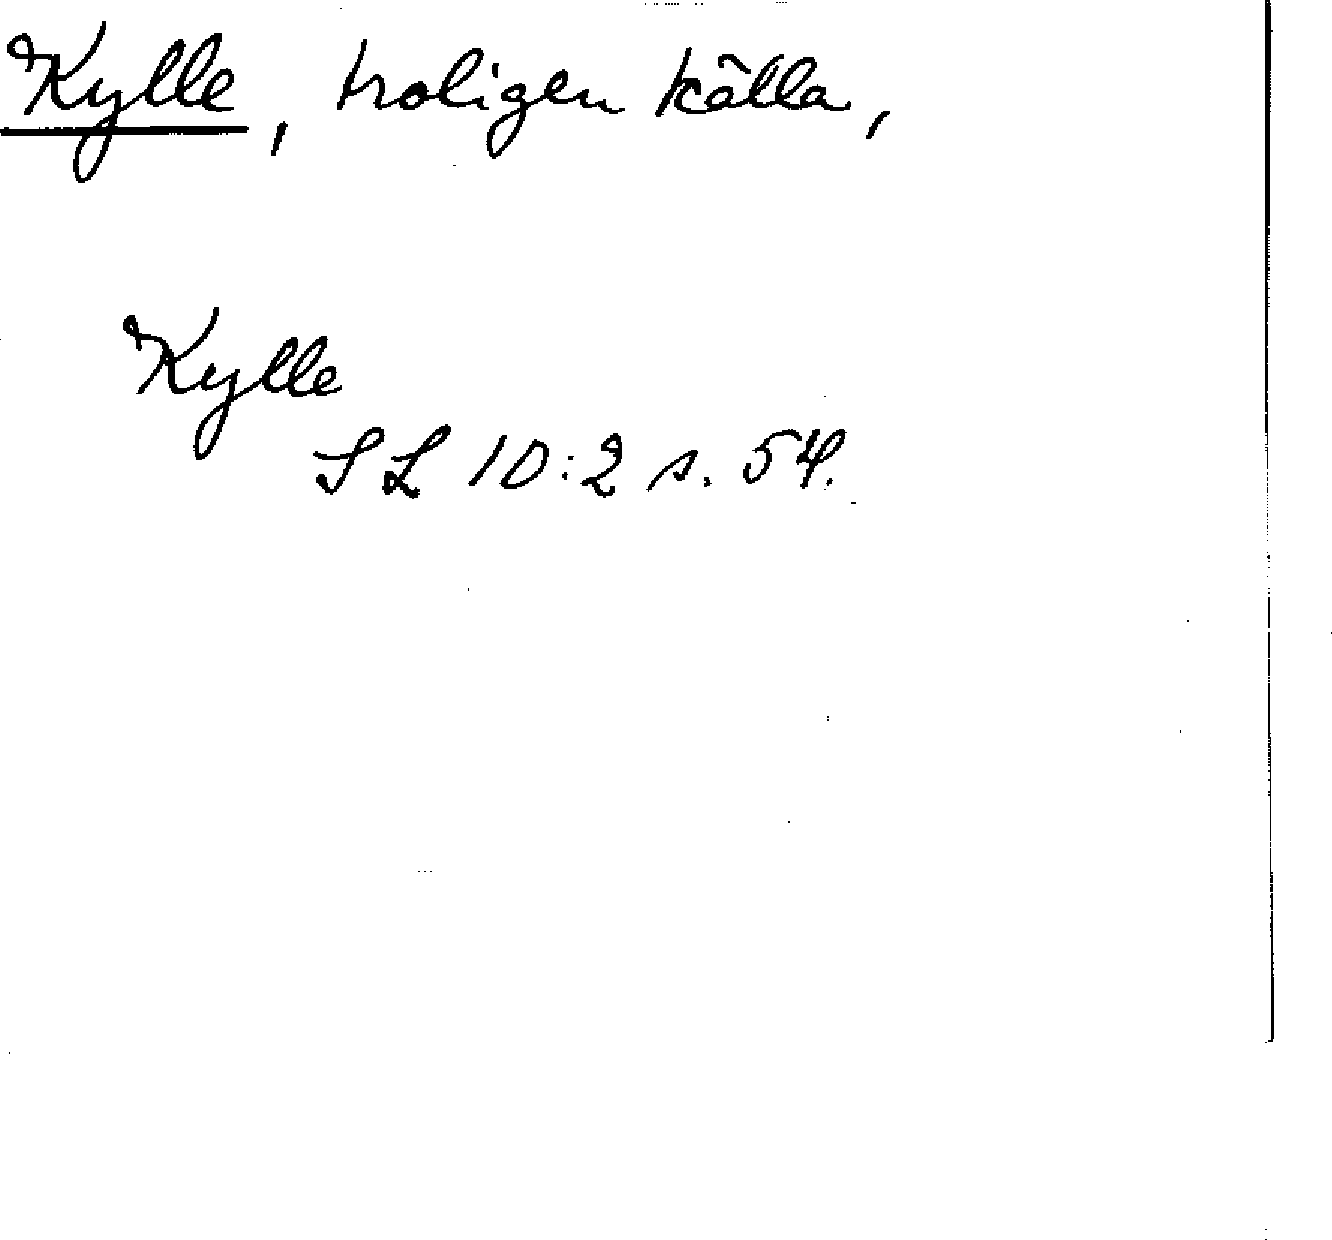 Kylle, troligen källa,
Kylle
SL 10:2 s. 54.